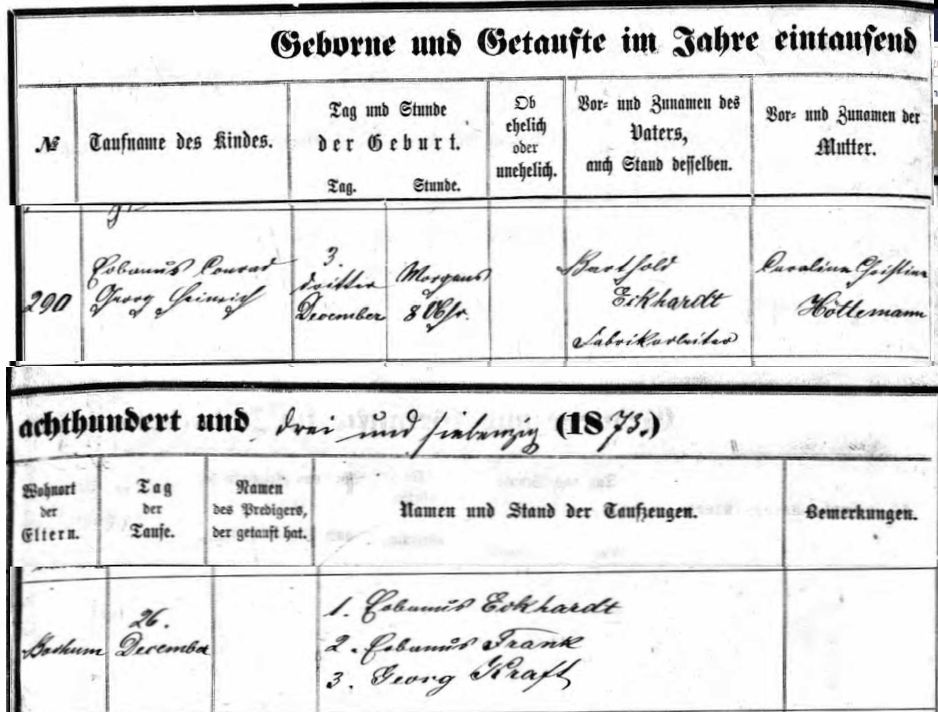 Geborne und Getaufte im Jahre eintausend
№
Taufname des Kindes.
Tag und Stunde
der Geburt.
Tag.
Stunde.
Ob
ehelich
oder
unehelich.
Vor- und Zunamen des
Vaters,
auch Stand desselben.
Vor- und Zunamen der
Mutter.
290
Eobanus Conrad
Georg Heinrich
3.
dritter
December
Morgens
8 Uhr.
Barthold
Eckhardt
Fabrikarbeiter
Caroline Christine
Höttemann
achthundert und drei und siebenzig (1873.)
Wohnort
der
Eltern.
Tag
der
Taufe.
Namen
des Predigers,
der getauft hat.
Namen und Stand der Taufzeugen.
Bemerkungen.
Bochum
26.
December
1. Eobanus Eckhardt
2. Eobanus Frank
3. Georg Kraft